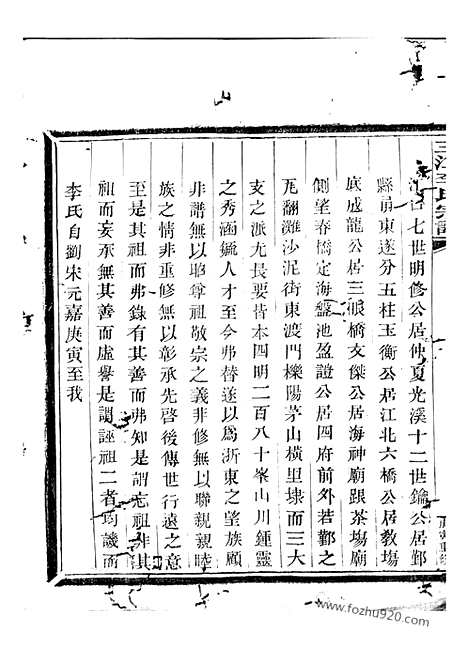 三江李氏宗譜
七世明修公居仲夏光溪十二世鑰公居鄞
縣前東遂分五柱玉衡公居江北六橋公居教塲
底成龍公居三眼橋文傑公居海神廟跟茶塲廟
側望春橋定海盤池盈證公居四府前外若鄞之
瓦翻灘沙泥街東渡門櫟陽茅山橫里埭而三大
支之派尤長要皆本四明二百八十峯山川鍾靈
之秀涵毓人才至今弗替遂以爲浙東之望族顧
非譜無以昭尊祖敬宗之義非修無以聯親親睦
族之情非重修無以彰承先啓後傳世行遠之意
至是其祖而弗錄有其善而弗知是謂忘祖非其
祖而妄承無其善而虛譽是謂誣祖二者均譏而
李氏自劉宋元嘉庚寅至我
www.fozhu920.com